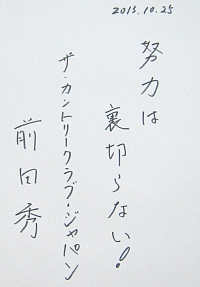 2013.10.25
努力は
裏切らない!
ザ・カントリークラブ・ジャパン
前田秀